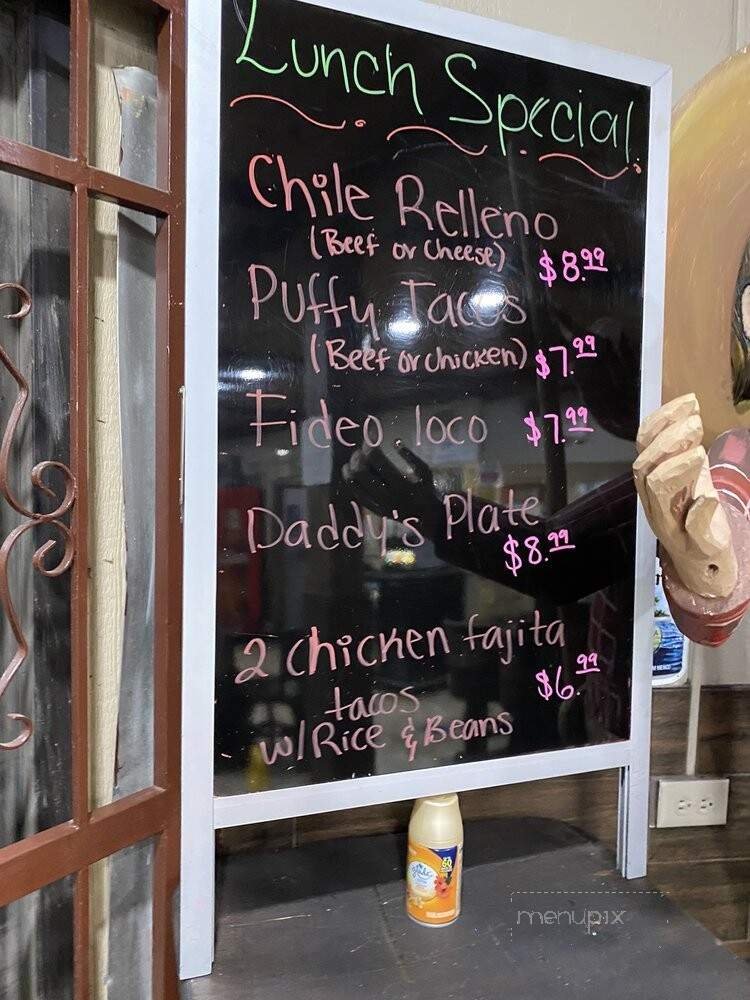 Lunch Special
Chile Relleno
(Beef or Cheese) $8.99
Puffy Tacos
(Beef or chicken) $7.99
Fideo loco $7.99
Daddy's Plate
$8.99
2 Chicken fajita
tacos $6.99
w/Rice & Beans
glade
menupix